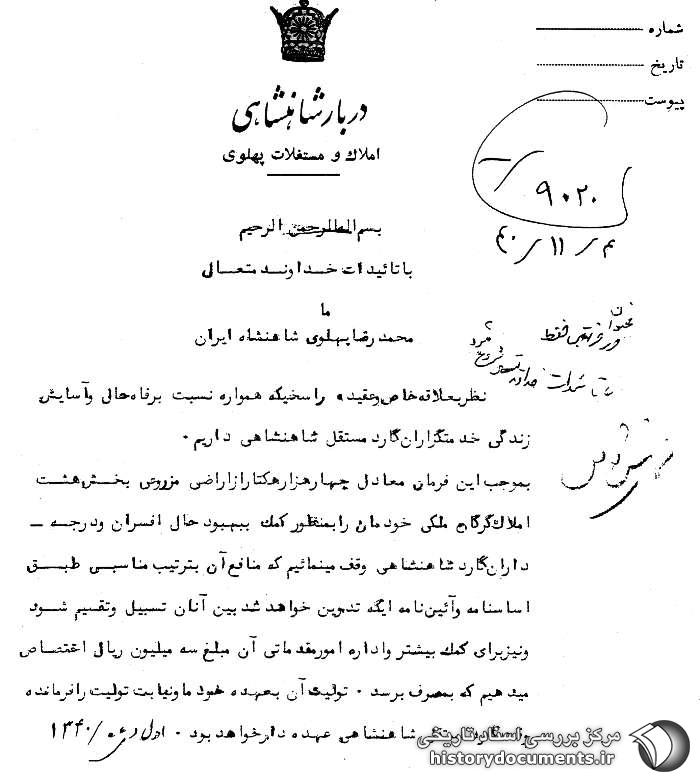 شماره
تاریخ
پیوست
دربار شاهنشاهی
املاک و مستغلات پهلوی
۹۰۲۰
۴۰/۱۱/۳
بسم الله الرحمن الرحیم
با تائیدات خداوند متعالی
ما
محمد رضا پهلوی شاهنشاه ایران
فقط
نظر بعلاقه خاص و عقیده راسخیکه همواره نسبت برفاه حالی و آسایش
زندگی خدمتگزاران گارد مستقل شاهنشاهی داریم.
بموجب این فرمان معادل چهار هزار هکتار از اراضی مزروعی بخش هشت
املاک گرگان ملکی خودمان را بمنظور کمک ببهبود حال افسران و درجه –
داران گارد شاهنشاهی وقف مینمائیم که منافع آن بترتیب مناسبی طبق
اساسنامه و آئین نامه ایکه تدوین خواهد شد بین آنان تسبیل و تقسیم شود
و نیز برای کمک بیشتر و اداره امور مقدماتی آن مبلغ سه میلیون ریال اختصاص
میدهیم که بمصرف برسد. تولیت آن بعهده خود ما و نیابت تولیت را فرمانده
شاهنشاهی عهده دار خواهد بود. اول دی ماه ۱۳۴۰
مرکز بررسی اسناد تاریخی
historydocuments.ir